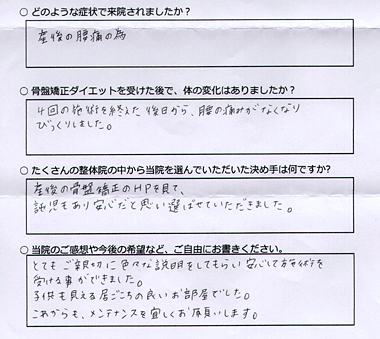 ○ どのような症状で来院されましたか？
産後の腰痛の為
○ 骨盤矯正ダイエットを受けた後で、体の変化はありましたか？
4回の施術を終えた後日から、腰の痛みがなくなり
びっくりしました。
○ たくさんの整体院の中から当院を選んでいただいた決め手は何ですか?
産後の骨盤矯正のHPを見て、
託児もあり安心だと思い選ばせていただきました。
○ 当院のご感想や今後の希望など、ご自由にお書きください。
とてもご親切に色々な説明をしてもらい安心して施術を
受ける事ができました。
子供も見える居ごこちの良いお部屋でした。
これからも、メンテナンスを宜しくお願いします。